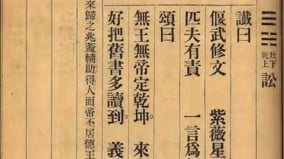 坎下
乾上
訟
讖曰
偃武修文　紫薇星
匹夫有責　一言爲
頌曰
無王無帝定乾坤　來
好把舊書多讀到　義
來歸之兆蓋輔助得人而帝不居德王